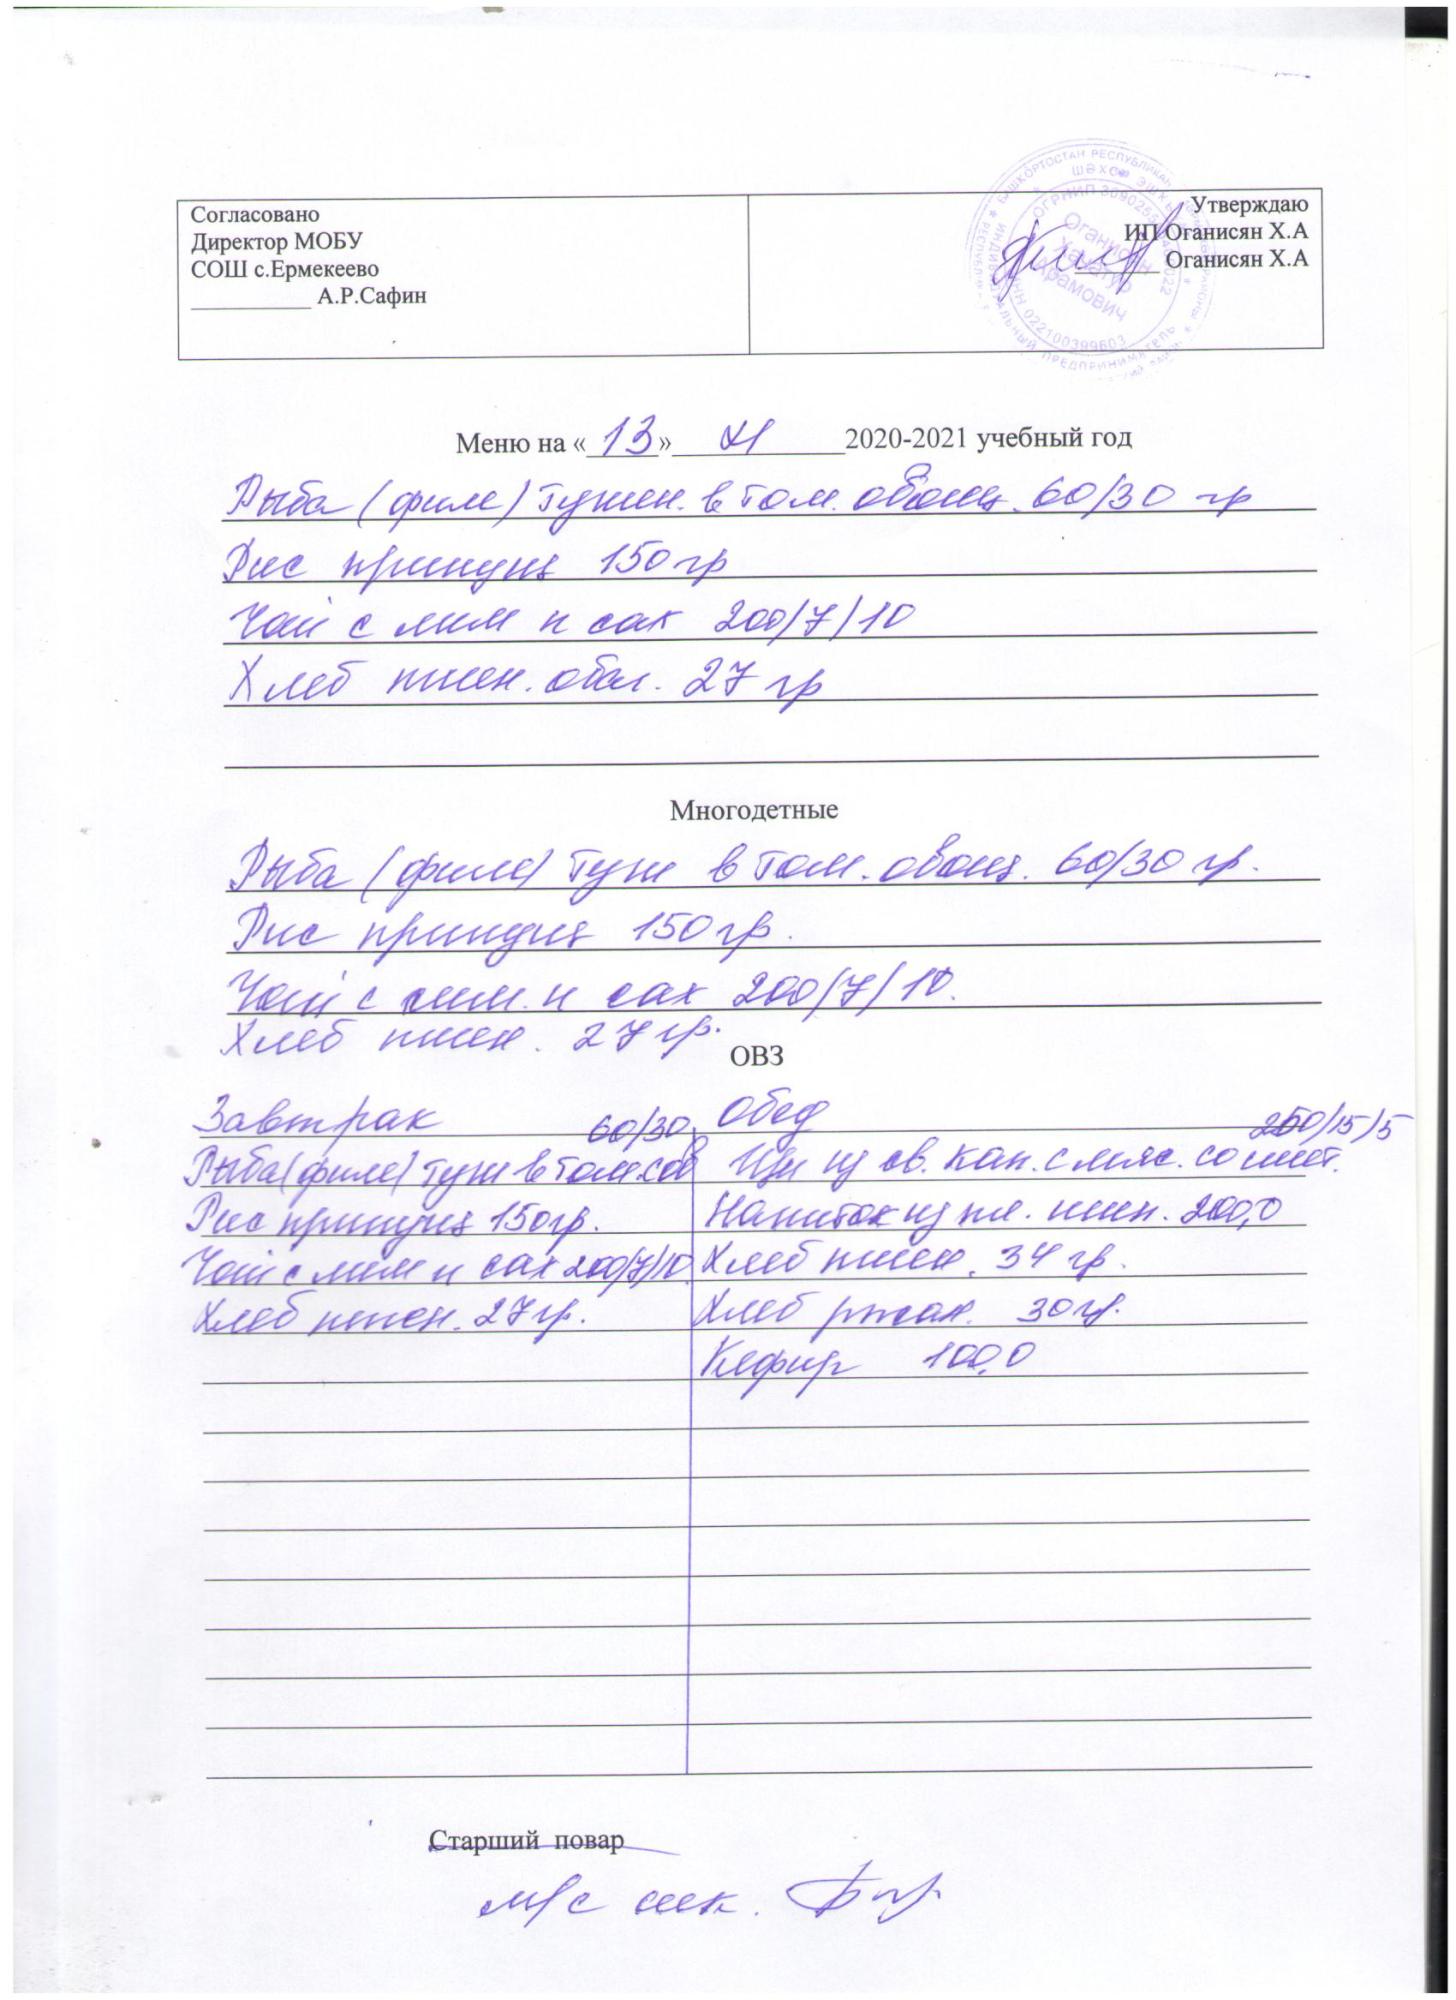 Согласовано
Директор МОБУ
СОШ с.Ермекеево
__________ А.Р.Сафин
Утверждаю
ИП Оганисян Х.А
_______ Оганисян Х.А
БАШКОРТОСТАН РЕСПУБЛИКАҺЫ
ИНДИВИДУАЛЬНЫЙ ПРЕДПРИНИМАТЕЛЬ
ИНН 022100399603
Оганисян
Хачатур
Арамович
Меню на «13» XI 2020-2021 учебный год
Рыба (филе) тушен. в том. овощ. 60/30 гр
Рис припущ 150 гр
Чай с лим и сах 200/7/10
Хлеб пшен. обог. 27 гр
Многодетные
Рыба (филе) туш в том. овощ. 60/30 гр.
Рис припущ 150 гр.
Чай с лим. и сах 200/7/10.
Хлеб пшен. 27 гр.
ОВЗ
Завтрак 60/30
Рыба (филе) туш в том.
Рис припущ 150гр.
Чай с лим и сах 200/7/10.
Хлеб пшен. 27 гр.
Обед 250/15/5
Щи из св. кап. с мяс. со смет.
Напиток из пл. шип. 200,0
Хлеб пшен. 34 гр.
Хлеб ржан. 30 гр.
Кефир 100,0
Старший повар
м/с шк.